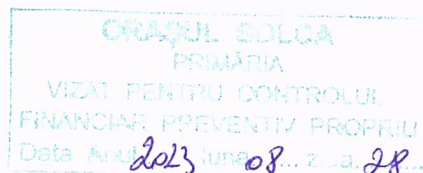 ORAȘUL SOLCA
PRIMĂRIA
VIZAT PENTRU CONTROLUL
FINANCIAR PREVENTIV PROPRIU
Data Anul 2023 luna 08... ziua 28...